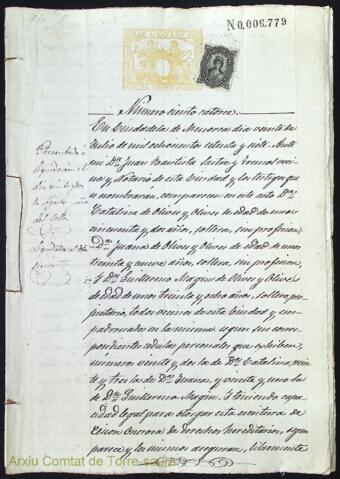 N0,006.779
Numero ciento catorce.
En Ciudadela de Menorca dia veinte de
Julio de mil ochocientos setenta y siete. Ante
mi Dn. Juan Bautista
y Notario de esta Ciudad y los testigos que
se nombrarán, comparecen en este acto Da.
Catalina de Olives y Olives de edad de unos
cincuenta y dos años, soltera, sin profesion,
Da. Juana de Olives y Olives de edad de unos
treinta y nueve años, soltera, sin profesion,
Y Dn. Guillermo Magin de Olives y Olives
de edad de unos treinta y ocho años, soltero, pro-
pietario, todos vecinos de esta Ciudad y em-
padronados en la misma segun sus corres-
pondientes cedulas personales que exhiben,
números veinte y dos la de Da. Catalina, vein-
te y tres la de Da. Juana, y veinte y uno la
de Dn. Guillermo Magin. Y teniendo capa-
cidad legal para otorgar esta escritura de
cesion onerosa de derechos hereditarios, segun
parece y los mismos aseguran, libremente
Arxiu Comtat de Torre-saura